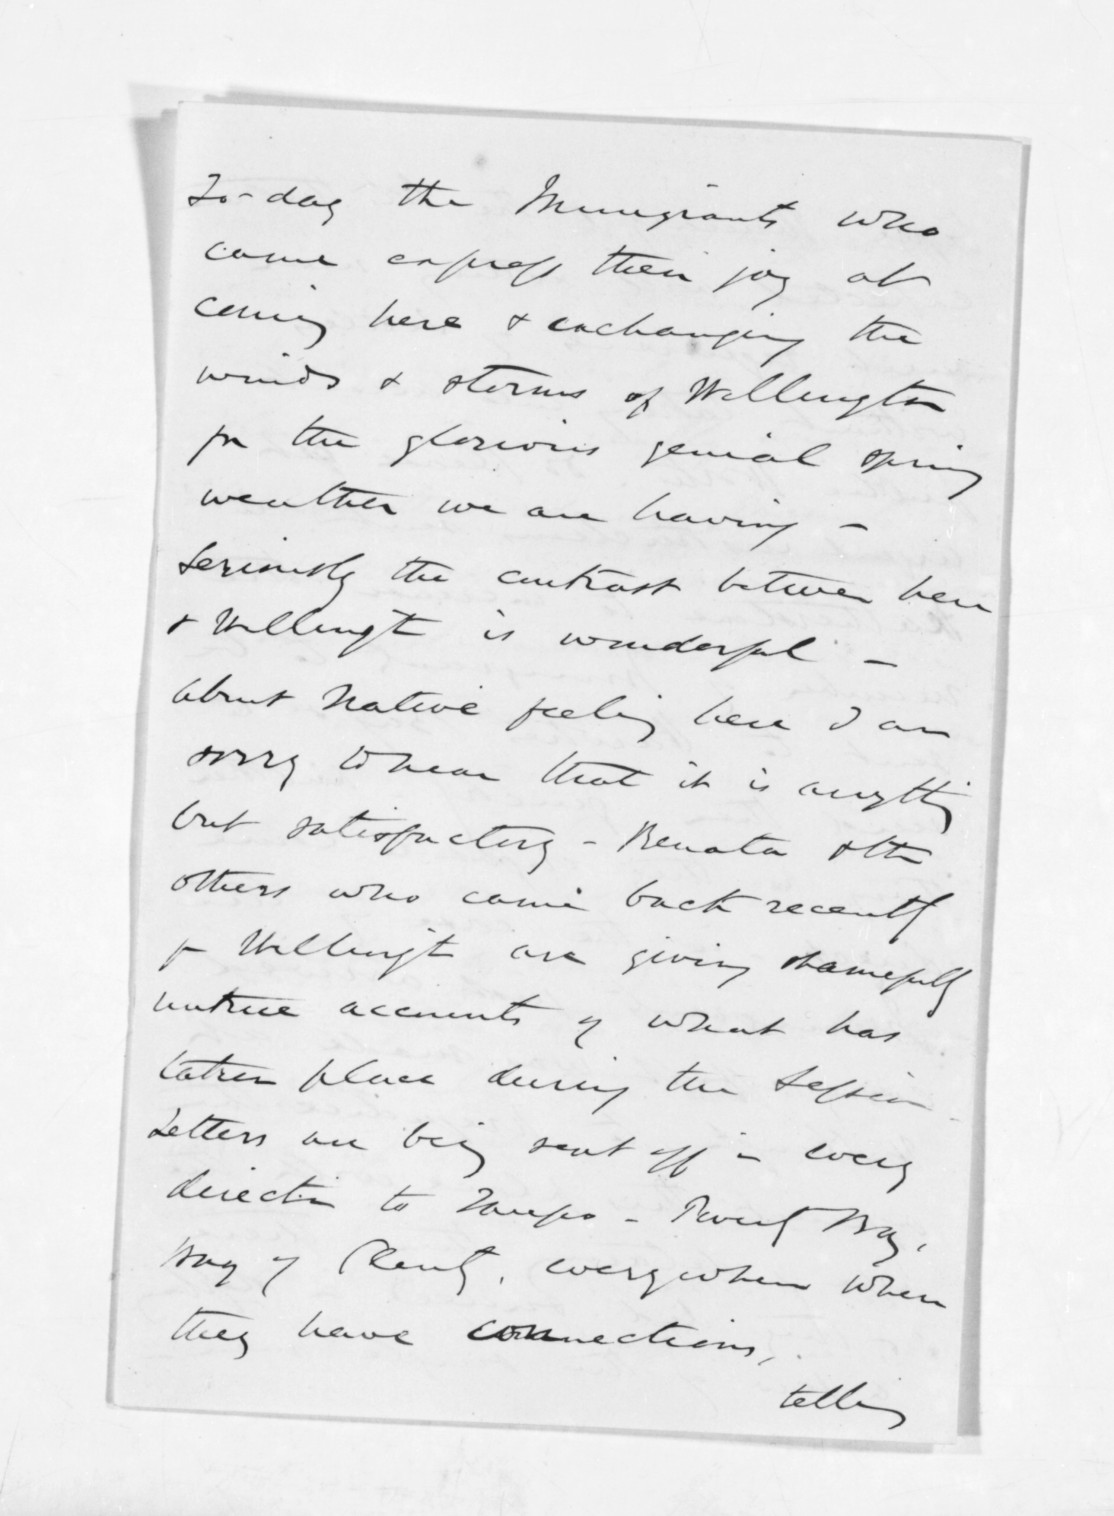 To-day the Immigrants who
came express their joy at
coming here & exchanging the
winds & storms of Wellington
for the glorious genial spring
weather we are having -
Seriously the contrast between here
& Wellingt is wonderful -
About Native feeling here I am
sorry to hear that it is anything
but satisfactory - Renata & the
others who came back recently
fr Wellingt are giving shamefully
untrue accounts of what has
taken place during the Session -
Letters are being sent off in every
direction to Taupo - Poverty Bay,
Bay of Plenty, everywhere where
they have connections,
telling